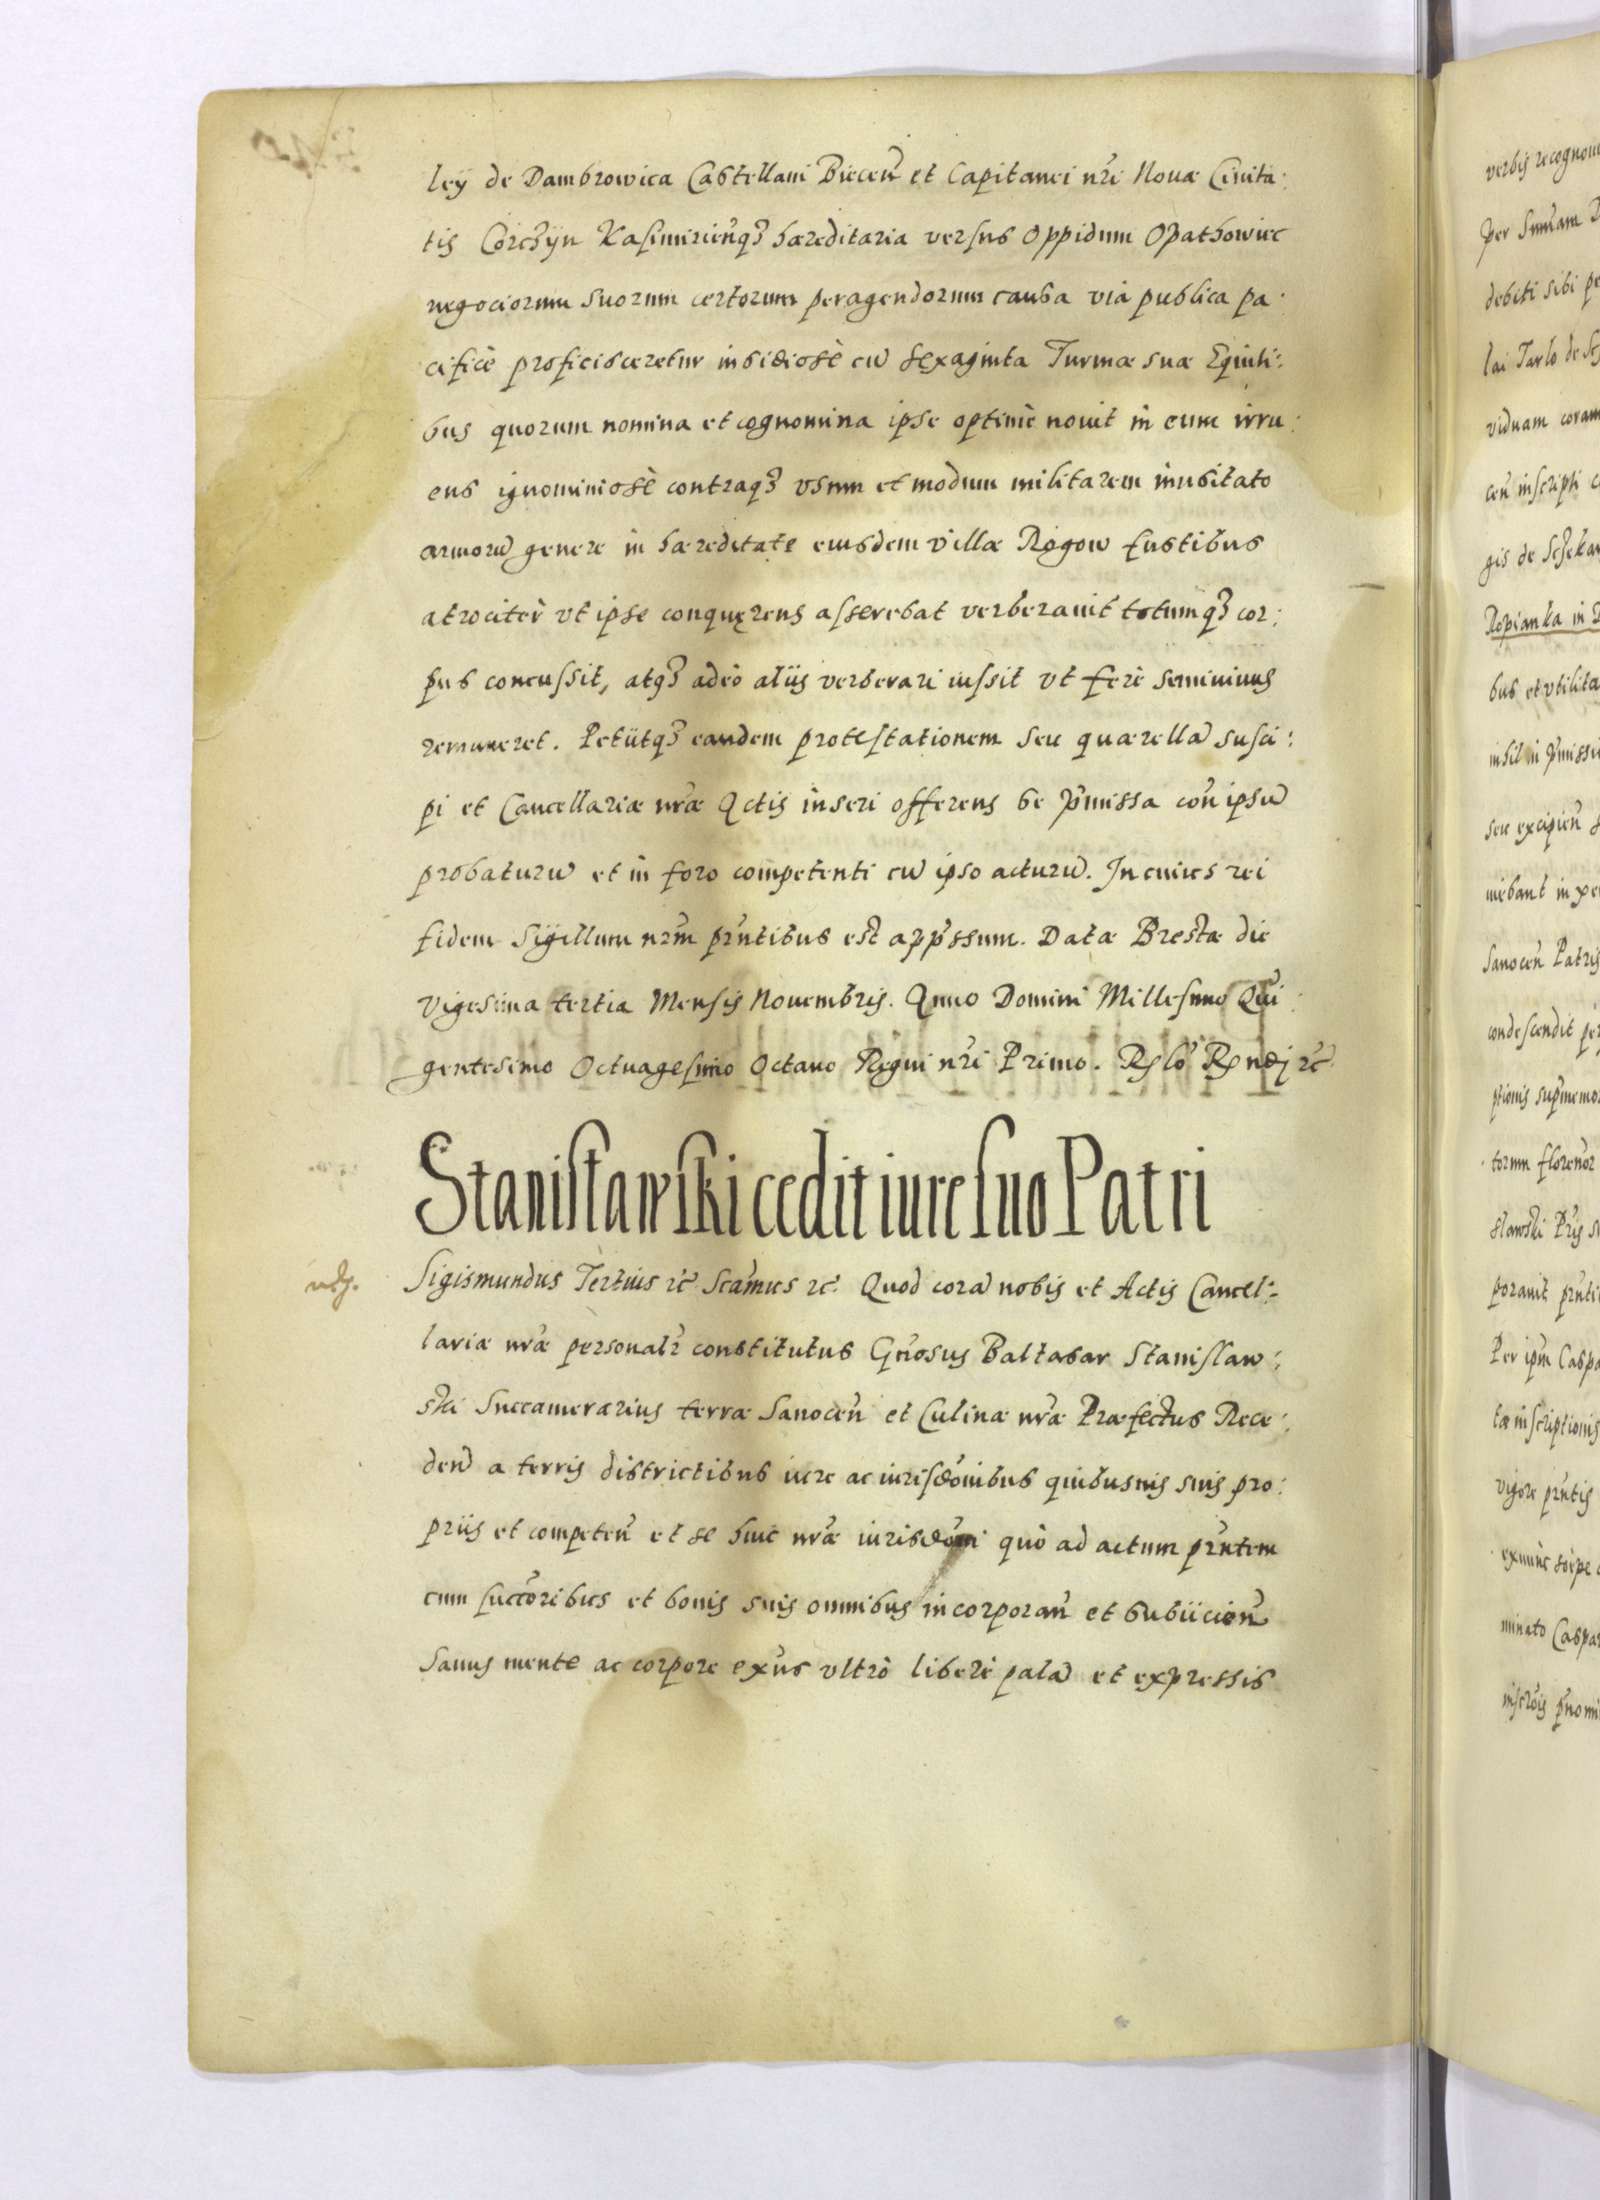 leÿ de Dambrowica Castellani Biecen̄ et Capitanei nr̄i Nouæ Ciuita:
tis Corczÿn Kasimirien̄q3 hæreditaria versus Oppidum Opathowiec
negociorum suorum certorum peragendorum causa via publica pa:
cificè proficisceretur insidiosè cū sexaginta Turmæ suæ Equiti:
bus quorum nomina et cognomina ipse optimè nouit in eum irru:
ens ignominiosè contraq3 vsum et modum militarem inusitato
armorū genere in hæreditate eiusdem villæ Rogow fustibus
atrocitèr vt ipse conquęrens asserebat verberauit totumq3 cor:
pus concussit, atq3 adeò aliis verberari iussit vt ferè seminiuus
remaneret. Petiitq3 eandem protestationem seu quærellā susci:
pi et Cancellariæ nr̄æ Actis inseri offerens se p̄missa con̄ ipsū
probaturū et in foro competenti cū ipso acturū. In cuius rei
fidem Sigillum nr̄m pr̄ntibus est app̄ssum. Datæ Brestæ die
Vigesima tertia Mensis Nouembris. Anno Domini Millesimo Qui:
gentesimo Octuagesimo Octauo Regni nr̄i Primo. Rslo Rsndj rc̄
Stanisławski cedit iure suo Patri
Sigismundus Tertius rc̄ Scamus rc̄ Quod corā nobis et Actis Cancel:
lariæ nr̄æ personalr̄ constitutus Gn̄osus Baltasar Stanislaw:
ski Succamerarius terræ Sanocen̄ et Culinæ nr̄æ Præfectus Rece:
den̄ a terris districtibus iure ac iurisdōnibus quibusuis suis pro:
priis et competen̄ et se huic nr̄æ iurisdōni quò ad actum pr̄ntem
cum succōribus et bonis suis omnibus incorporan̄ et subiicien̄
Sanus mente ac corpore exn̄s vltrò liberè palā et expressis
verbis recognou
per Summam
debiti sibi pe
lai Tarlo de
viduam coram
cen̄ inscripti
gis de
Ropianka in
bus et vtilita
nihil in p̄missi
seu excipien̄
Sanocen̄ Patris
condescendit per
ptionis
torum florenor
Per ipm̄ Caspa
tæ inscriptionis
vigore pr̄ntis
minato Caspar